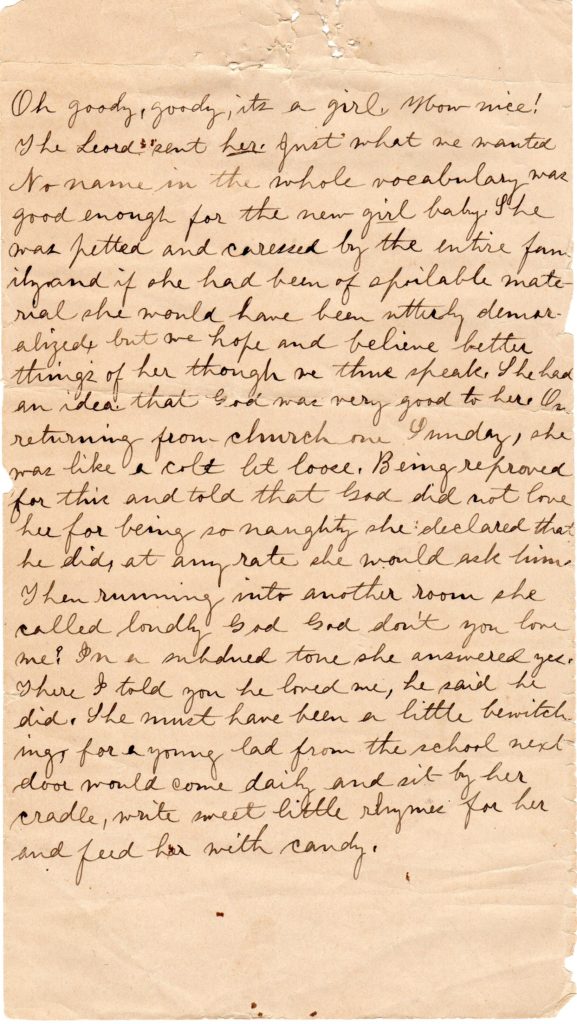 Oh goody, goody, its a girl. How nice!
The Leord sent her. Just what we wanted
No name in the whole vocabulary was
good enough for the new girl baby. She
was petted and caressed by the entire fam
ily, and if she had been of spoilable mate-
rial she would have been utterly demor-
alized, but we hope and believe better
things of her though we thus speak. She had
an idea that God was very good to her. On
returning from church one Sunday, she
was like a colt let loose. Being reproved
for this and told that God did not love
her for being so naughty she declared that
he did, at any rate she would ask him.
Then running into another room she
called loudly God God don't you love
me? In a subdued tone she answered yes.
There I told you he loved me, he said he
did. She must have been a little bewitch
ing, for a young lad from the school next
door would come daily and sit by her
cradle, write sweet little rhymes for her
and feed her with candy.